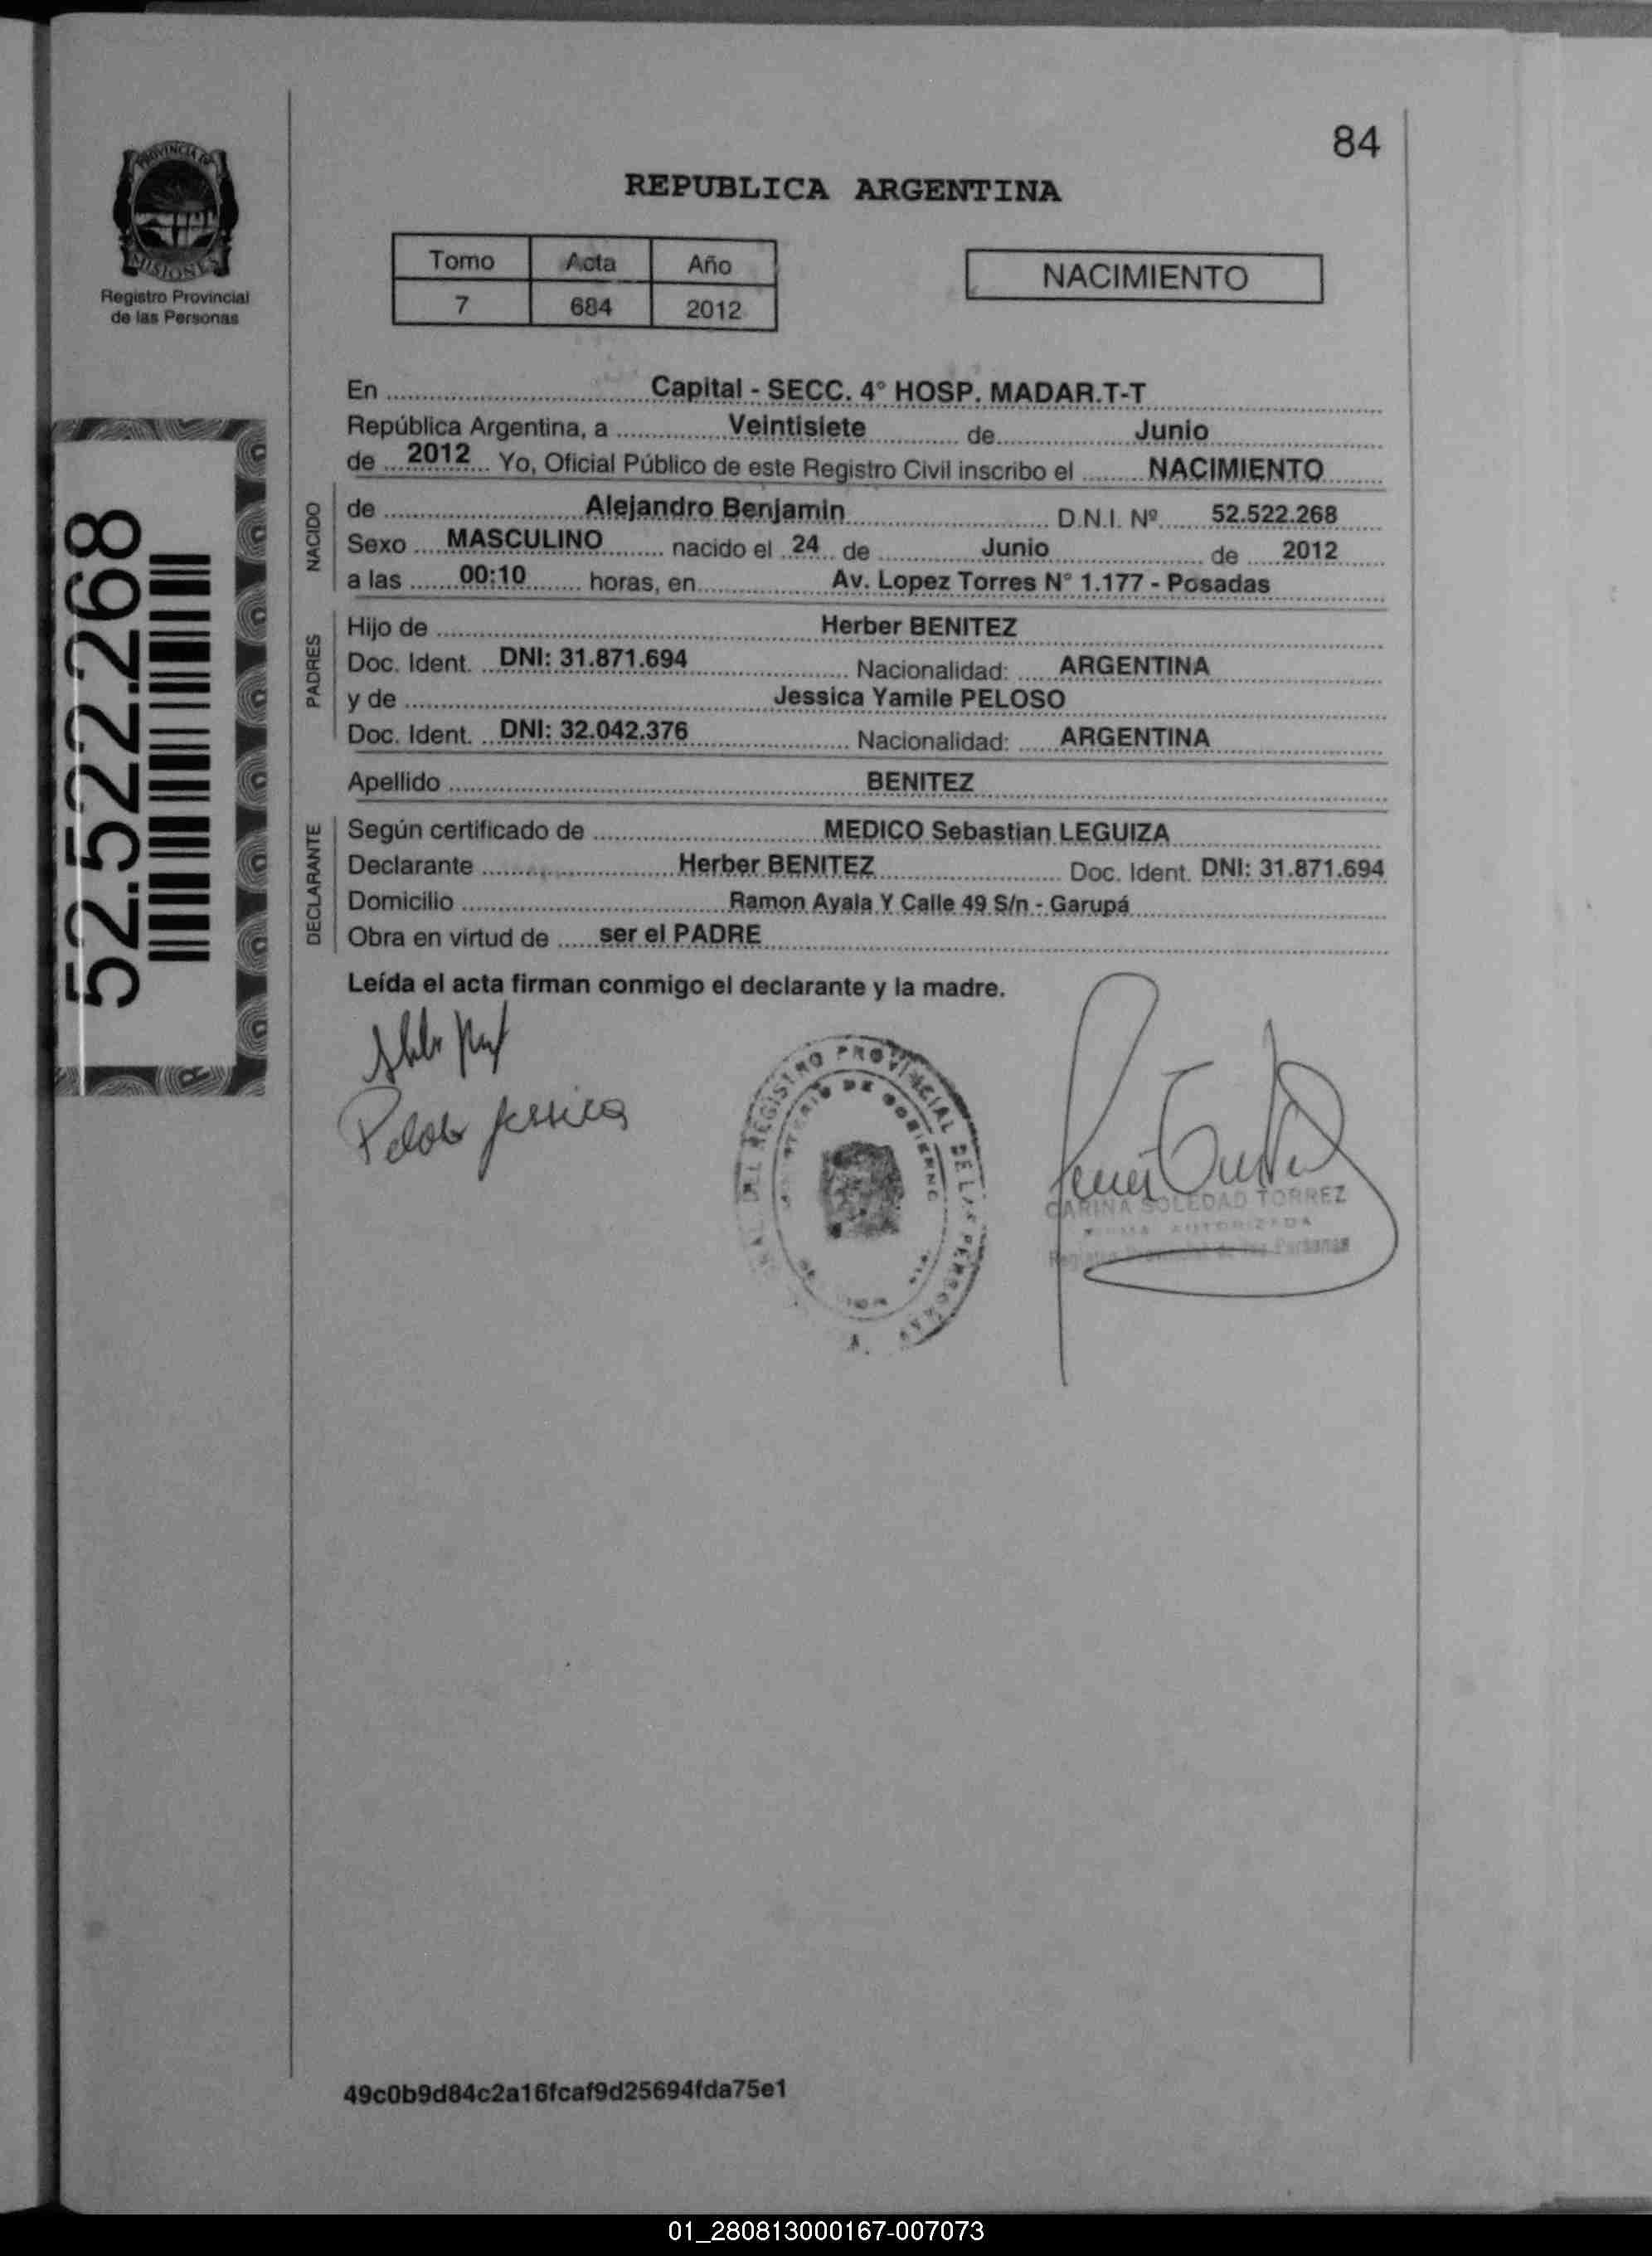 84
PROVINCIA DE
MISIONES
Registro Provincial
de las Personas
REPUBLICA ARGENTINA
Tomo Acta Año
7 684 2012
NACIMIENTO
En Capital - SECC. 4° HOSP. MADAR.T-T
República Argentina, a Veintisiete de Junio
de 2012 Yo, Oficial Público de este Registro Civil inscribo el NACIMIENTO
NACIDO
de Alejandro Benjamin D.N.I. Nº 52.522.268
Sexo MASCULINO nacido el 24 de Junio de 2012
a las 00:10 horas, en Av. Lopez Torres N° 1.177 - Posadas
PADRES
Hijo de Herber BENITEZ
Doc. Ident. DNI: 31.871.694 Nacionalidad: ARGENTINA
y de Jessica Yamile PELOSO
Doc. Ident. DNI: 32.042.376 Nacionalidad: ARGENTINA
Apellido BENITEZ
DECLARANTE
Según certificado de MEDICO Sebastian LEGUIZA
Declarante Herber BENITEZ Doc. Ident. DNI: 31.871.694
Domicilio Ramon Ayala Y Calle 49 S/n - Garupá
Obra en virtud de ser el PADRE
Leída el acta firman conmigo el declarante y la madre.
52.522.268
Jessica
DEL REGISTRO PROVINCIAL DE LAS PERSONAS
DE GOBIERNO
CARINA SOLEDAD TORREZ
FIRMA AUTORIZADA
Registro Provincial de las Personas
49c0b9d84c2a16fcaf9d25694fda75e1
01_280813000167-007073